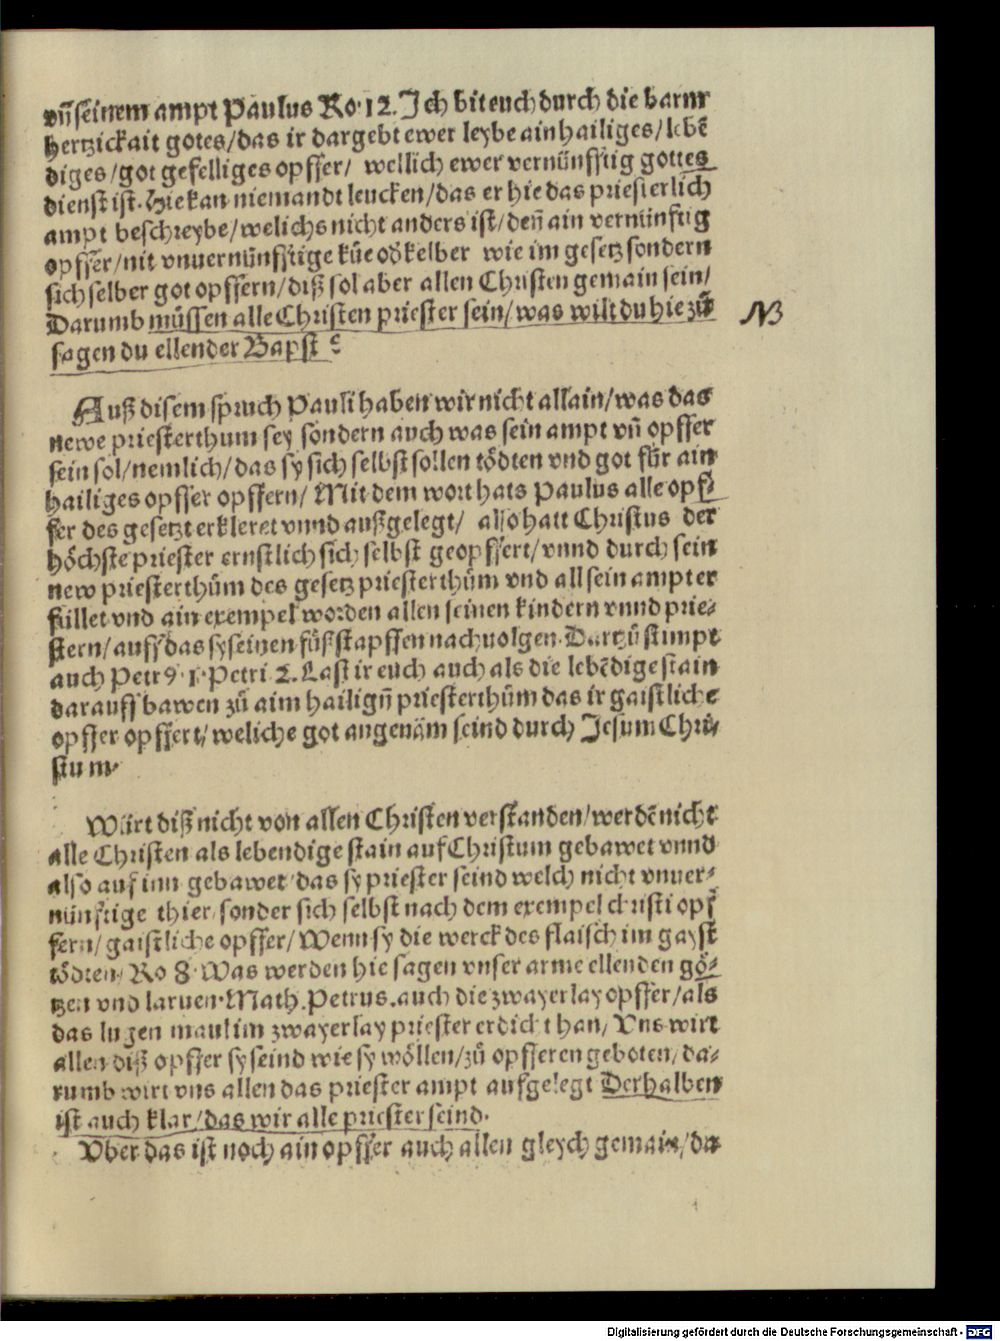 vñ seinem ampt Paulus Ro. 12. Ich bit euch durch die barm
hertzickait gotes/das ir dargebt ewer leybe ain hailiges/lebē
diges/got gefelliges opffer/ wellich ewer vernünfftig gottes
dienst ist. Hie kan niemandt leucken/das er hie das priesterlich
ampt beschreybe/welichs nicht anders ist/deñ ain vernünftig
opffer/nit vnuernünfftige küe odkelber wie im gesetz sondern
sich selber got opffern/diß sol aber allen Christen gemain sein/
Darumb müssen alle Christen priester sein/was wilt du hie zů
sagen du ellender Bapst
NB
Auß disem spruch Pauli haben wir nicht allain/was das
newe priesterthum sey sondern auch was sein ampt vñ opffer
sein sol/nemlich/das sy sich selbst sollen tödten vnd got für ain
hailiges opffer opffern/ Mit dem wort hats Paulus alle opf-
fer des gesetzt erkleret vnnd außgelegt/ also hatt Christus der
höchste priester ernstlich sich selbst geopffert/vnnd durch sein
new priesterthům des gesetz priesterthům vnd all sein ampt er
füllet vnd ain exempel worden allen seinen kindern vnnd prie-
stern/auff das sy seinen fůßstapffen nachuolgen. Dartzů stimpt
auch Petr9. 1. Petri 2. Last ir euch auch als die lebēdige stain
darauff bawen zů aim hailigñ priesterthům das ir gaistliche
opffer opffert/weliche got angenäm seind durch Jesum Chri-
stum.
Würt diß nicht von allen Christen verstanden/werdē nicht
alle Christen als lebendige stain auf Christum gebawet vnnd
also auf inn gebawet das sy priester seind welch nicht vnuer-
nünftige thier/sonder sich selbst nach dem exempel christi opf
fern/gaistliche opffer/Wenn sy die werck des flaisch im gayst
tödten/ Ro 8. Was werden hie sagen vnser arme ellenden gö-
tzen vnd laruen. Math. Petrus. auch die zwayerlay opffer/als
das lugen maul im zwayerlay priester erdicht han/ Vns wirt
allen diß opffer sy seind wie sy wöllen/zů opfferen geboten/da-
rumb wirt vns allen das priester ampt aufgelegt Derhalben
ist auch klar/das wir alle priester seind.
Vber das ist noch ain opffer auch allen gleych gemain/da
Digitalisierung gefördert durch die Deutsche Forschungsgemeinschaft - DFG